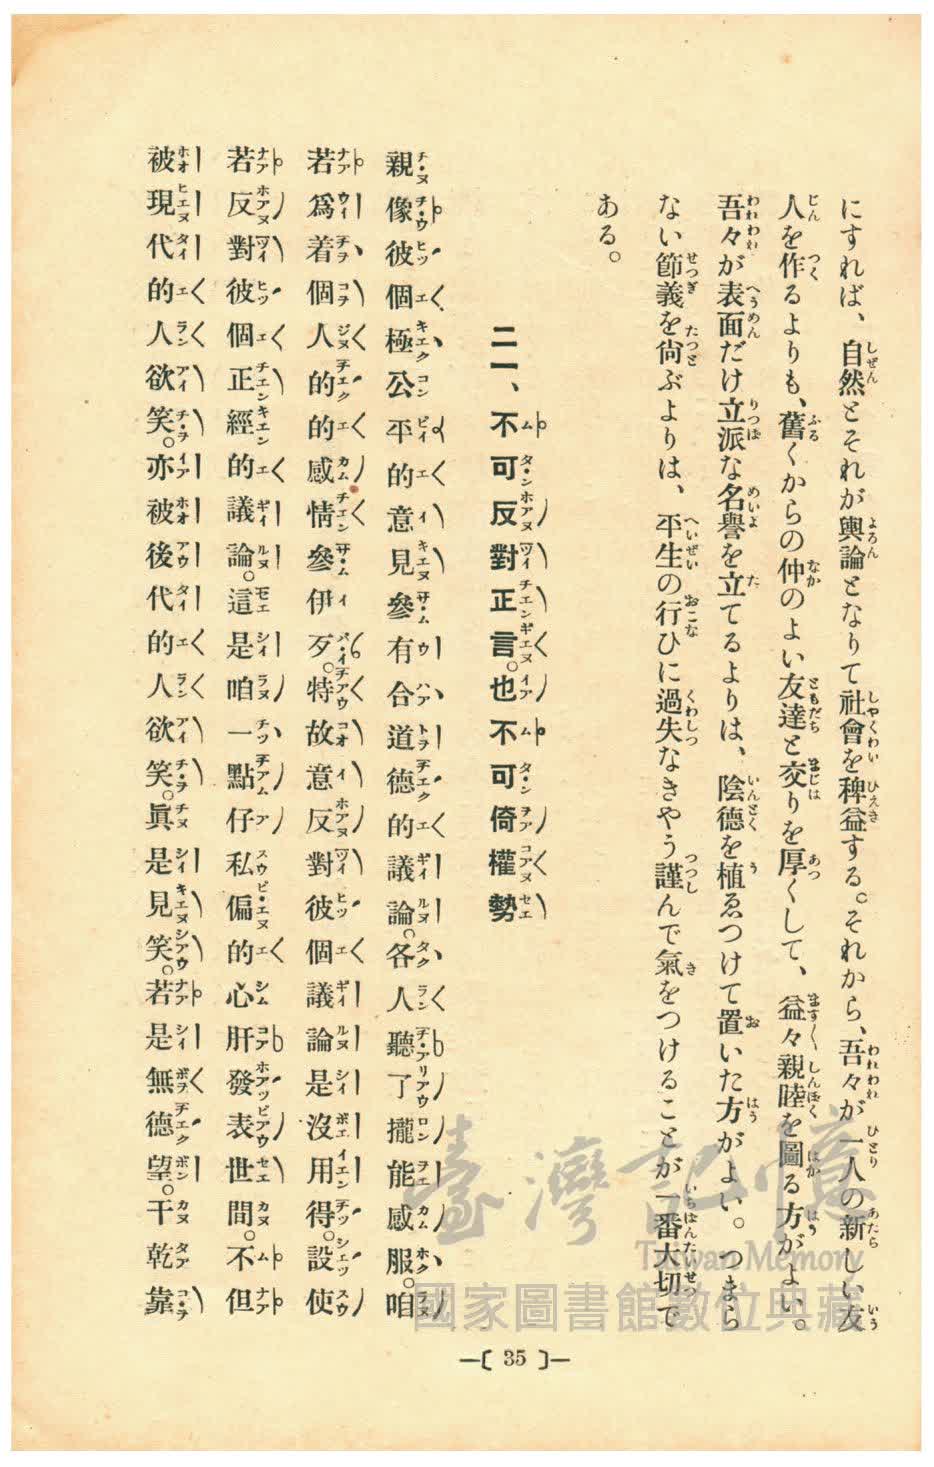 にすれば、自然とそれが輿論となりて社會を稗益する。それから、吾々が一人の新しい友
人を作るよりも、舊くからの仲のよい友達と交りを厚くして、益々親睦を圖る方がよい。
吾々が表面だけ立派な名譽を立てるよりは、陰德を植ゑつけて置いた方がよい。つまら
ない節義を尙ぶよりは、平生の行ひに過失なきやう謹んで氣をつけることが一番大切で
ある。
二一、不可反對正言。也不可倚權勢
親像彼個極公平的意見參有合道德的議論。各人聽了攏能感服。咱
若爲着個人的的感情參伊歹。特故意反對彼個議論是沒用得。設使
若反對彼個正經的議論。這是咱一點仔私偏的心肝發表世間。不但
被現代的人欲笑。亦被後代的人欲笑。眞是見笑。若是無德望。干乾靠
—〔 35 〕—
臺灣記憶
Taiwan Memory
國家圖書館數位典藏